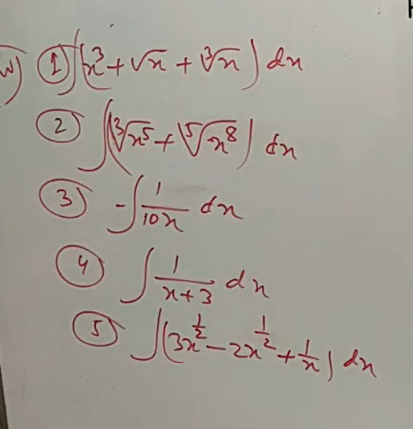 w) ① ∫(x³ + √x + ∛x) dx
② ∫(∛x⁵ + ⁵√x⁸) dx
③ -∫ 1/10x dx
④ ∫ 1/x+3 dx
⑤ ∫(3x^½ - 2x^½ + 1/x) dx